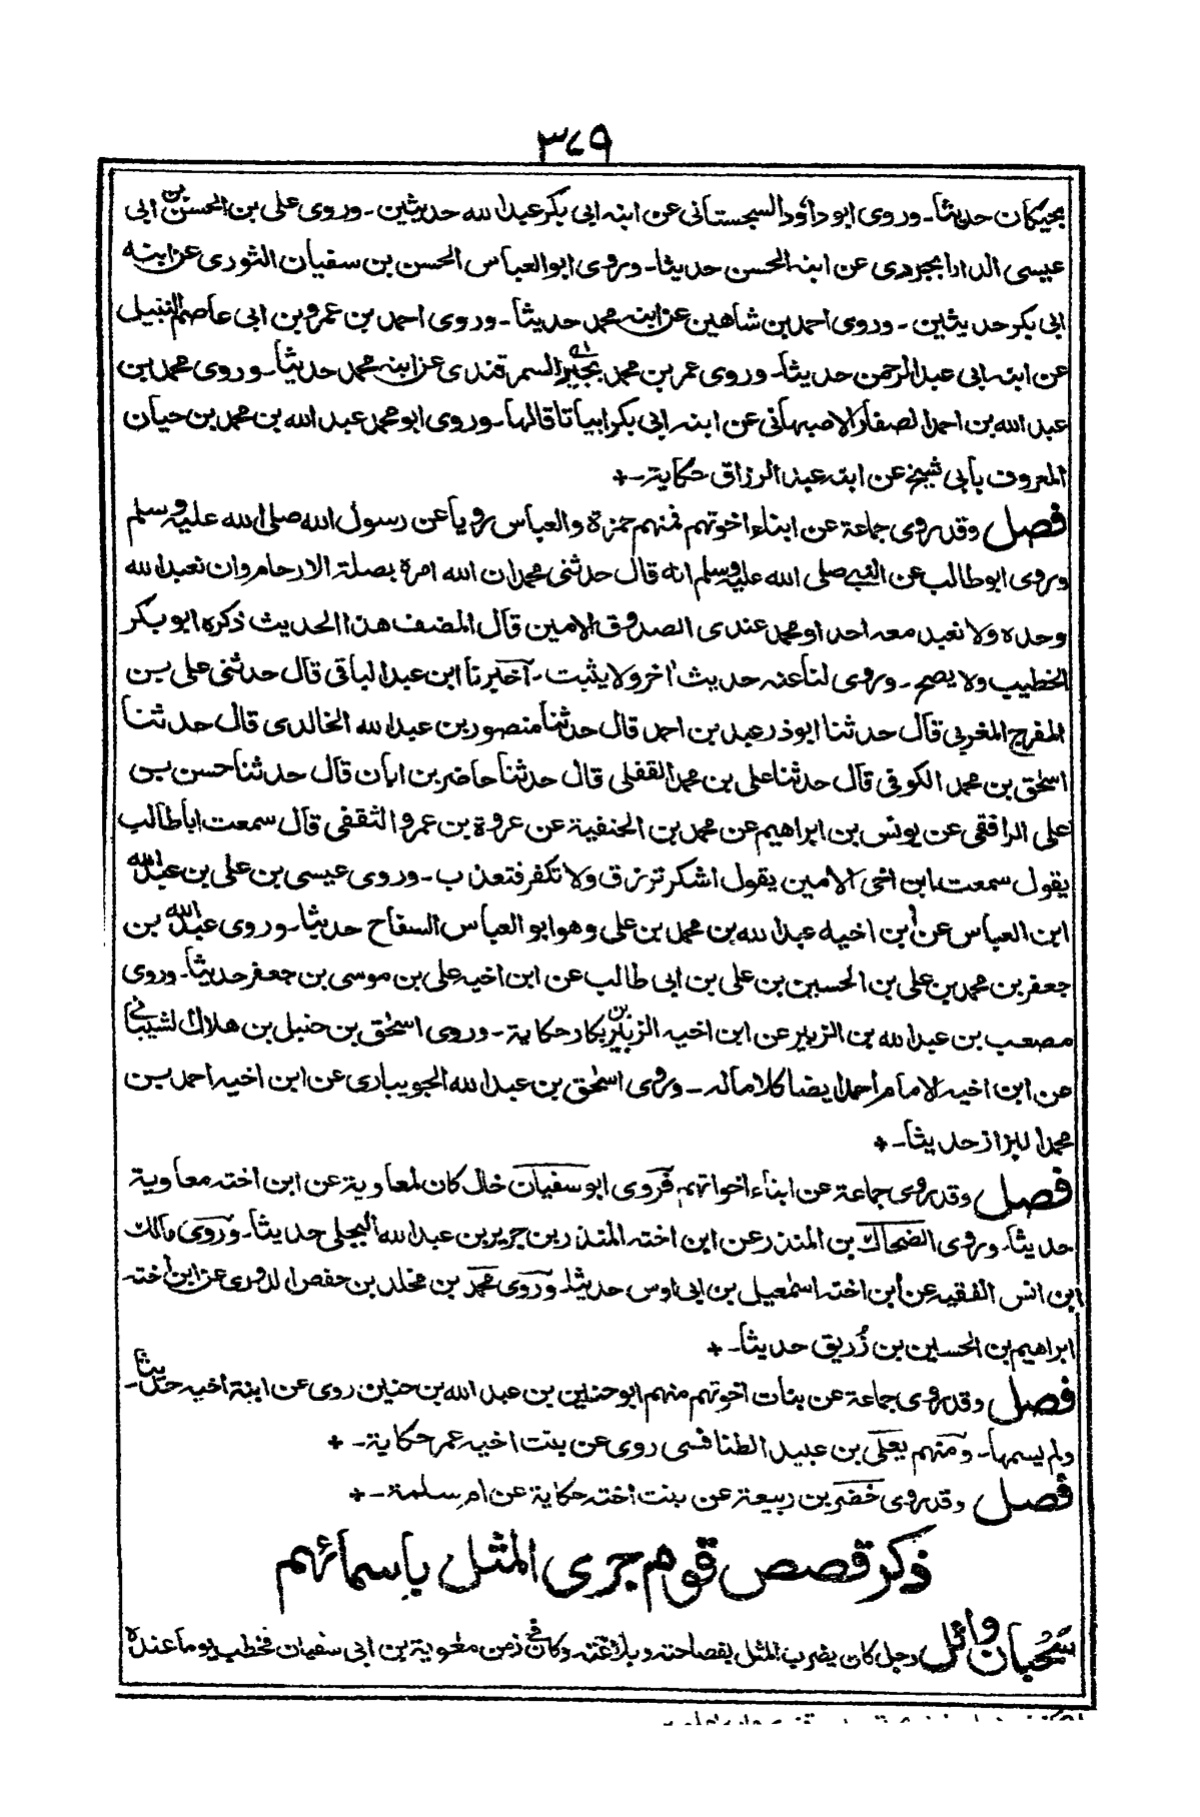 ٣٤٩
بجيكان حديثا۔ وروى ابو داؤد السجستانى عن ابنه ابى بكر عبد الله حديثين۔ وروى على بن الحسن بن ابى
عيسى الدارابجردى عن ابنه الحسن حديثا۔ وروى ابو العباس الحسن بن سفيان الثورى عن ابنه
ابى بكر حديثين۔ وروى احمد بن شاهين عن ابنه محمد حديثا۔ وروى احمد بن عمرو بن ابى عاصم النبيل
عن ابنه ابى عبد الرحمن حديثا۔ وروى عمر بن محمد بجير السمرقندى عن ابنه محمد حديثا۔ وروى محمد بن
عبد الله بن احمد الصفار الاصبهانى عن ابنه ابى بكر ابياتا قالها۔ وروى ابو محمد عبد الله بن محمد بن حيان
المعروف بابى شيخ عن ابنه عبد الرزاق حكاية۔+
فصل وقد روى جماعة عن ابناء اخوتهم فمنهم حمزة والعباس رويا عن رسول الله صلى الله عليه وسلم
وروى ابو طالب عن النبى صلى الله عليه وسلم انه قال حدثنى محمد ان الله امره بصلة الارحام وان نعبد الله
وحده ولا نعبد معه احدا ومحمد عندى الصدوق الامين قال المصنف هذا الحديث ذكره ابو بكر
الخطيب ولا يصح۔ وروى لنا عنه حديث اخر ولا يثبت۔ اخبرنا ابن عبد الباقى قال حدثنى على بن
المفرج المغربى قال حدثنا ابو ذر عبد بن احمد قال حدثنا منصور بن عبد الله الخالدى قال حدثنا
اسحق بن محمد الكوفى قال حدثنا على بن محمد القفلى قال حدثنا حاضر بن ابان قال حدثنا حسن بن
على الرافقى عن يونس بن ابراهيم عن محمد بن الحنفية عن عروة بن عمرو الثقفى قال سمعت ابا طالب
يقول سمعت ابن اخى الامين يقول اشكر ترزق ولا تكفر فتعذب۔ وروى عيسى بن على بن عبد الله
ابن العباس عن ابن اخيه عبد الله بن محمد بن على وهو ابو العباس السفاح حديثا۔ وروى عبد الله بن
جعفر بن محمد بن على بن الحسين بن على بن ابى طالب عن ابن اخيه على بن موسى بن جعفر حديثا۔ وروى
مصعب بن عبد الله بن الزبير عن ابن اخيه الزبير بن بكار حكاية۔ وروى اسحق بن حنبل بن هلال الشيبانى
عن ابن اخيه الامام احمد ايضا كلاما له۔ وروى اسحق بن عبد الله الجويبارى عن ابن اخيه احمد بن
محمد البزاز حديثا۔+
فصل وقد روى جماعة عن ابناء اخواتهم فروى ابو سفيان خال كان لمعاوية عن ابن اخته معاوية
حديثا۔ وروى الضحاك بن المنذر عن ابن اخته المنذر بن جرير بن عبد الله البجلى حديثا۔ وروى مالك
ابن انس الفقيه عن ابن اخته اسمعيل بن ابى اوس حديثا۔ وروى محمد بن مخلد بن حفص الدورى عن ابن اخته
ابراهيم بن الحسين بن زُريق حديثا۔+
فصل وقد روى جماعة عن بنات اخوتهم منهم ابو حنين بن عبد الله بن حنين روى عن ابنة اخيه حديثا۔
ولم يسمها۔ ومنهم يعلى بن عبيد الطنافسى روى عن بنت اخيه عمر حكاية۔+
فصل وقد روى خضر بن ربيعة عن بنت اخته حكاية عن ام سلمة۔+
ذكر قصص قوم جرى المثل باسمائهم
سَحْبان وائل رجل كان يضرب المثل بفصاحته وبلاغته وكان فى زمن معوية بن ابى سفيان فخطب يوما عنده